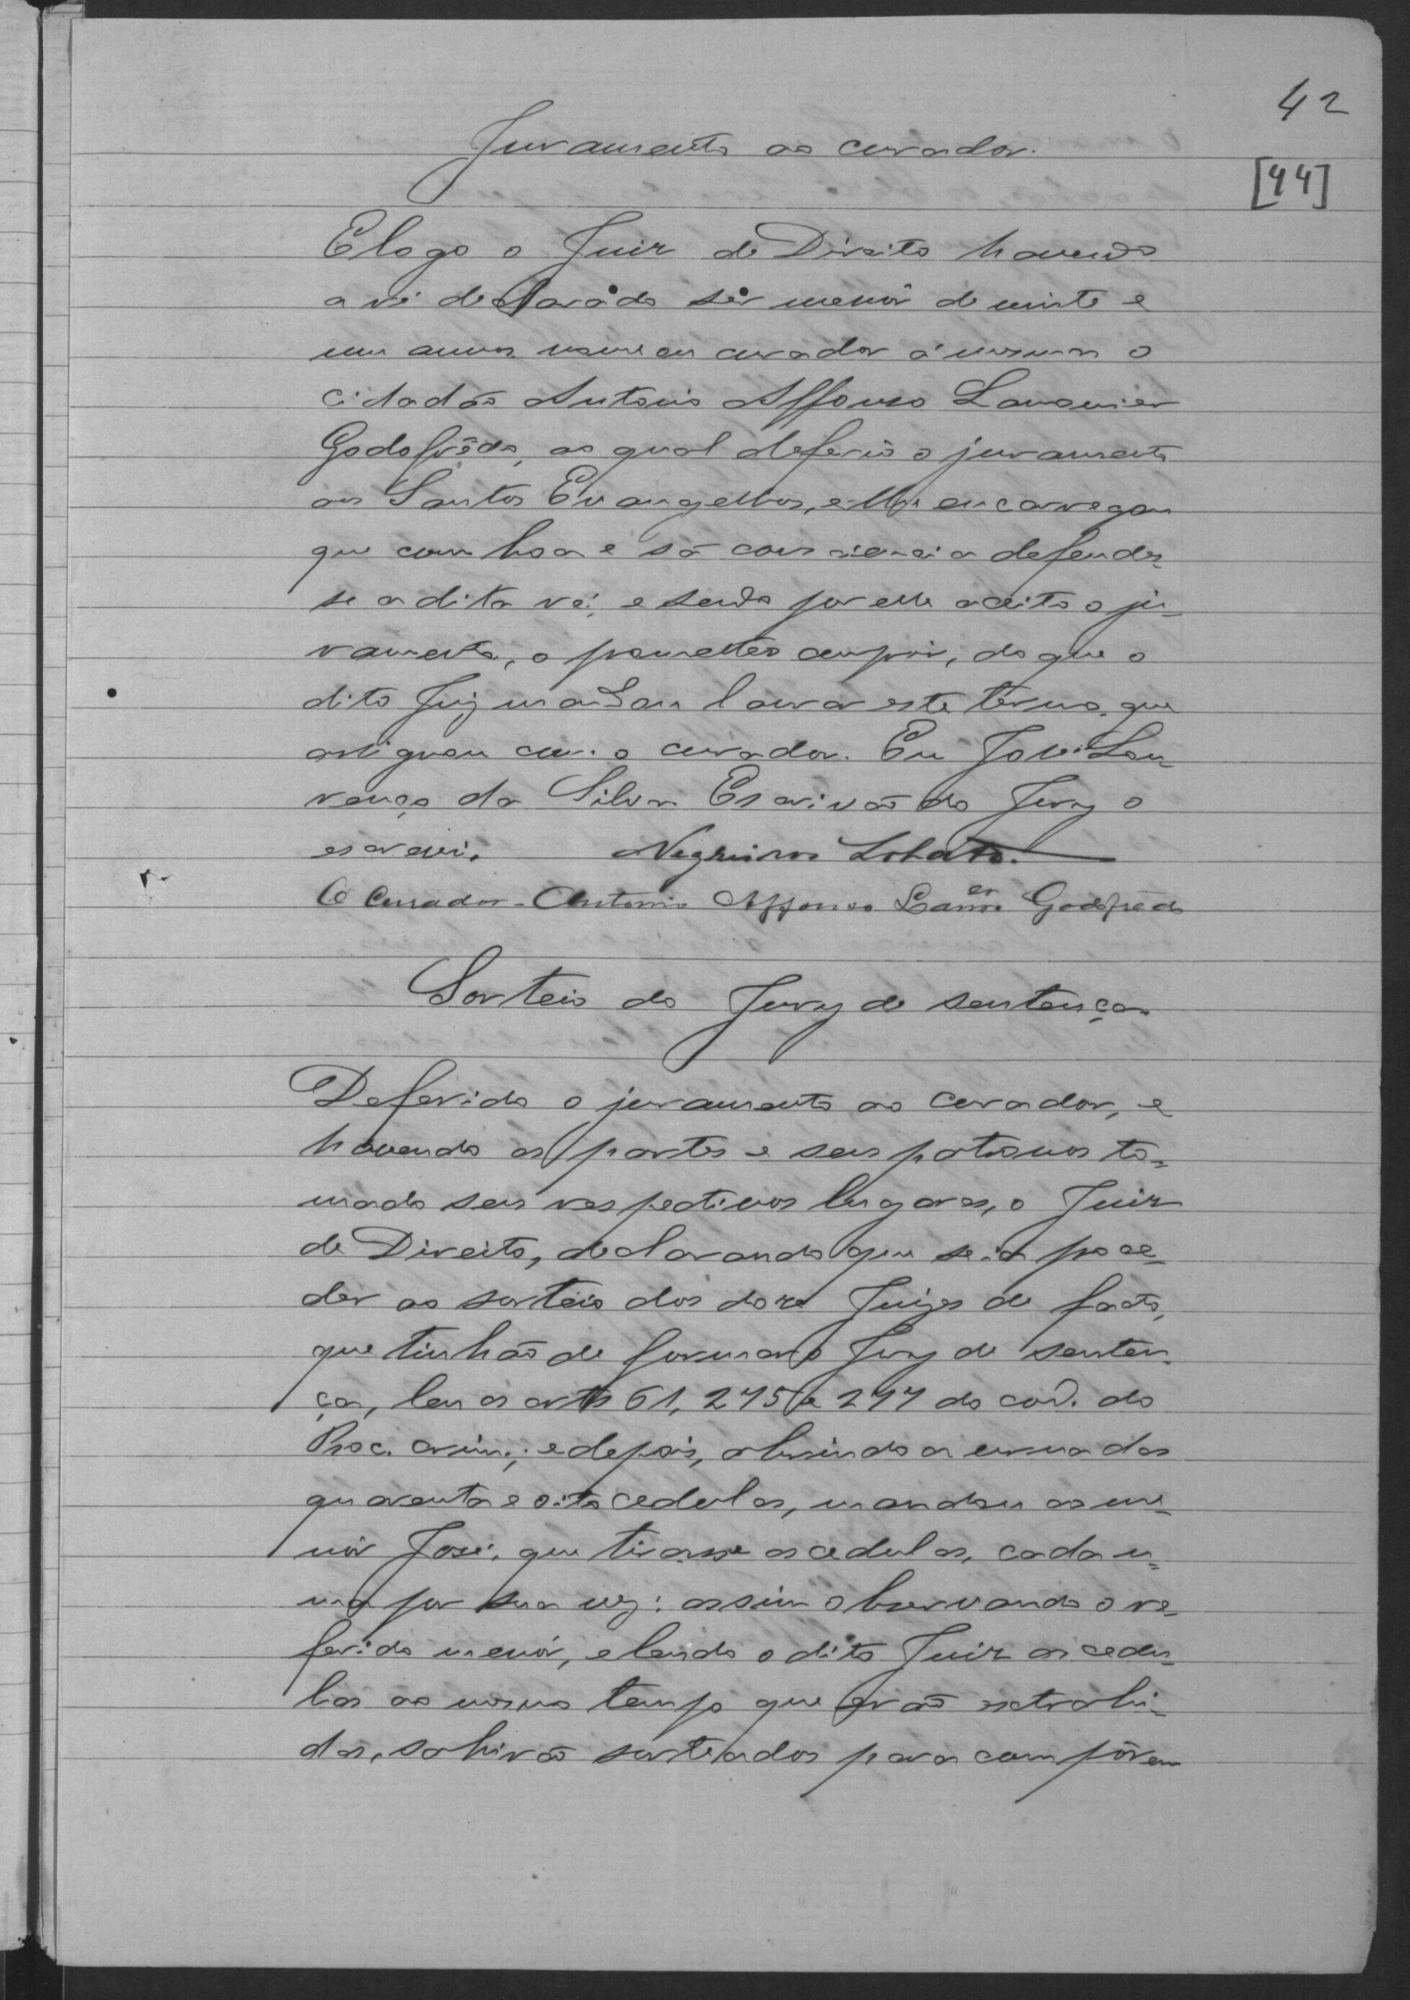 42
[44]
Juramento ao curador.
E logo o Juiz de Direito havendo
a ré declarado ser menór de vinte e
um annos nomeou curador á mesma o
cidadão Antonio Affonso Lamounier
Godofrêdo, ao qual deferio o juramento
aos Santos Evangelhos, e lhe encarregou
que com boa e sã consciencia defendes-
se a dita ré; e sendo por elle aceito o ju-
ramento, o prometteo cumprir, do que o
dito Juiz mandou lavrar este têrmo, que
assignou com o curador. Eu José Lou-
renço da Silva Escrivão do Jury o
escrevi. Negreiros Lobato.
O Curador - Antonio Affonso Lamer Godofrêdo
Sorteio do Jury de sentença.
Deferido o juramento ao curador, e
havendo as partes e seus patronos to-
mado seus respectivos lugares, o Juiz
de Direito, declarando que se ia proce-
der ao sorteio dos doze Juizes de facto,
que tinhão de formar o Jury de senten-
ça, leu os arts 61, 275 e 277 do cod. do
Proc. crim.; e depois, abrindo a urna das
quarenta e oito cedulas, mandou ao me-
nór José, que tirasse as cedulas, cada u-
ma por sua vez: assim observando o re-
ferido menór, e lendo o dito Juiz as cedu-
las ao mesmo tempo que erão extrahi-
das, sahirão sorteados para compôrem